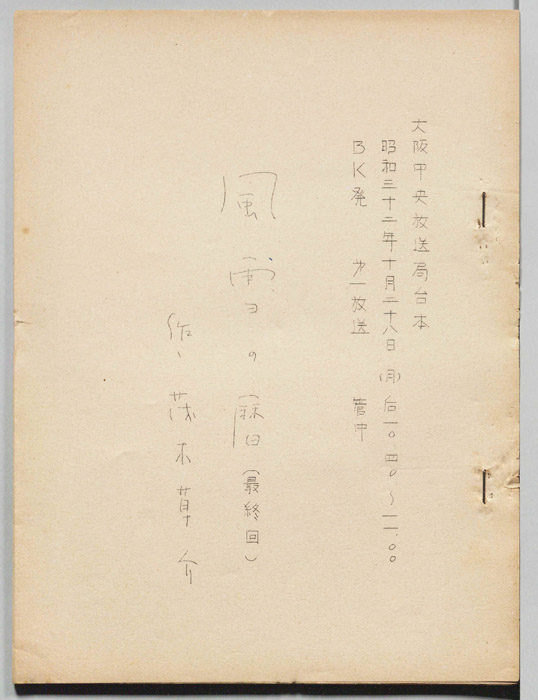 大阪中央放送局台本
昭和三十二年十月二十八日（月）后一〇.四〇～一一.〇〇
BK発　第一放送　管中
風雪の暦（最終回）
作、茂木草介